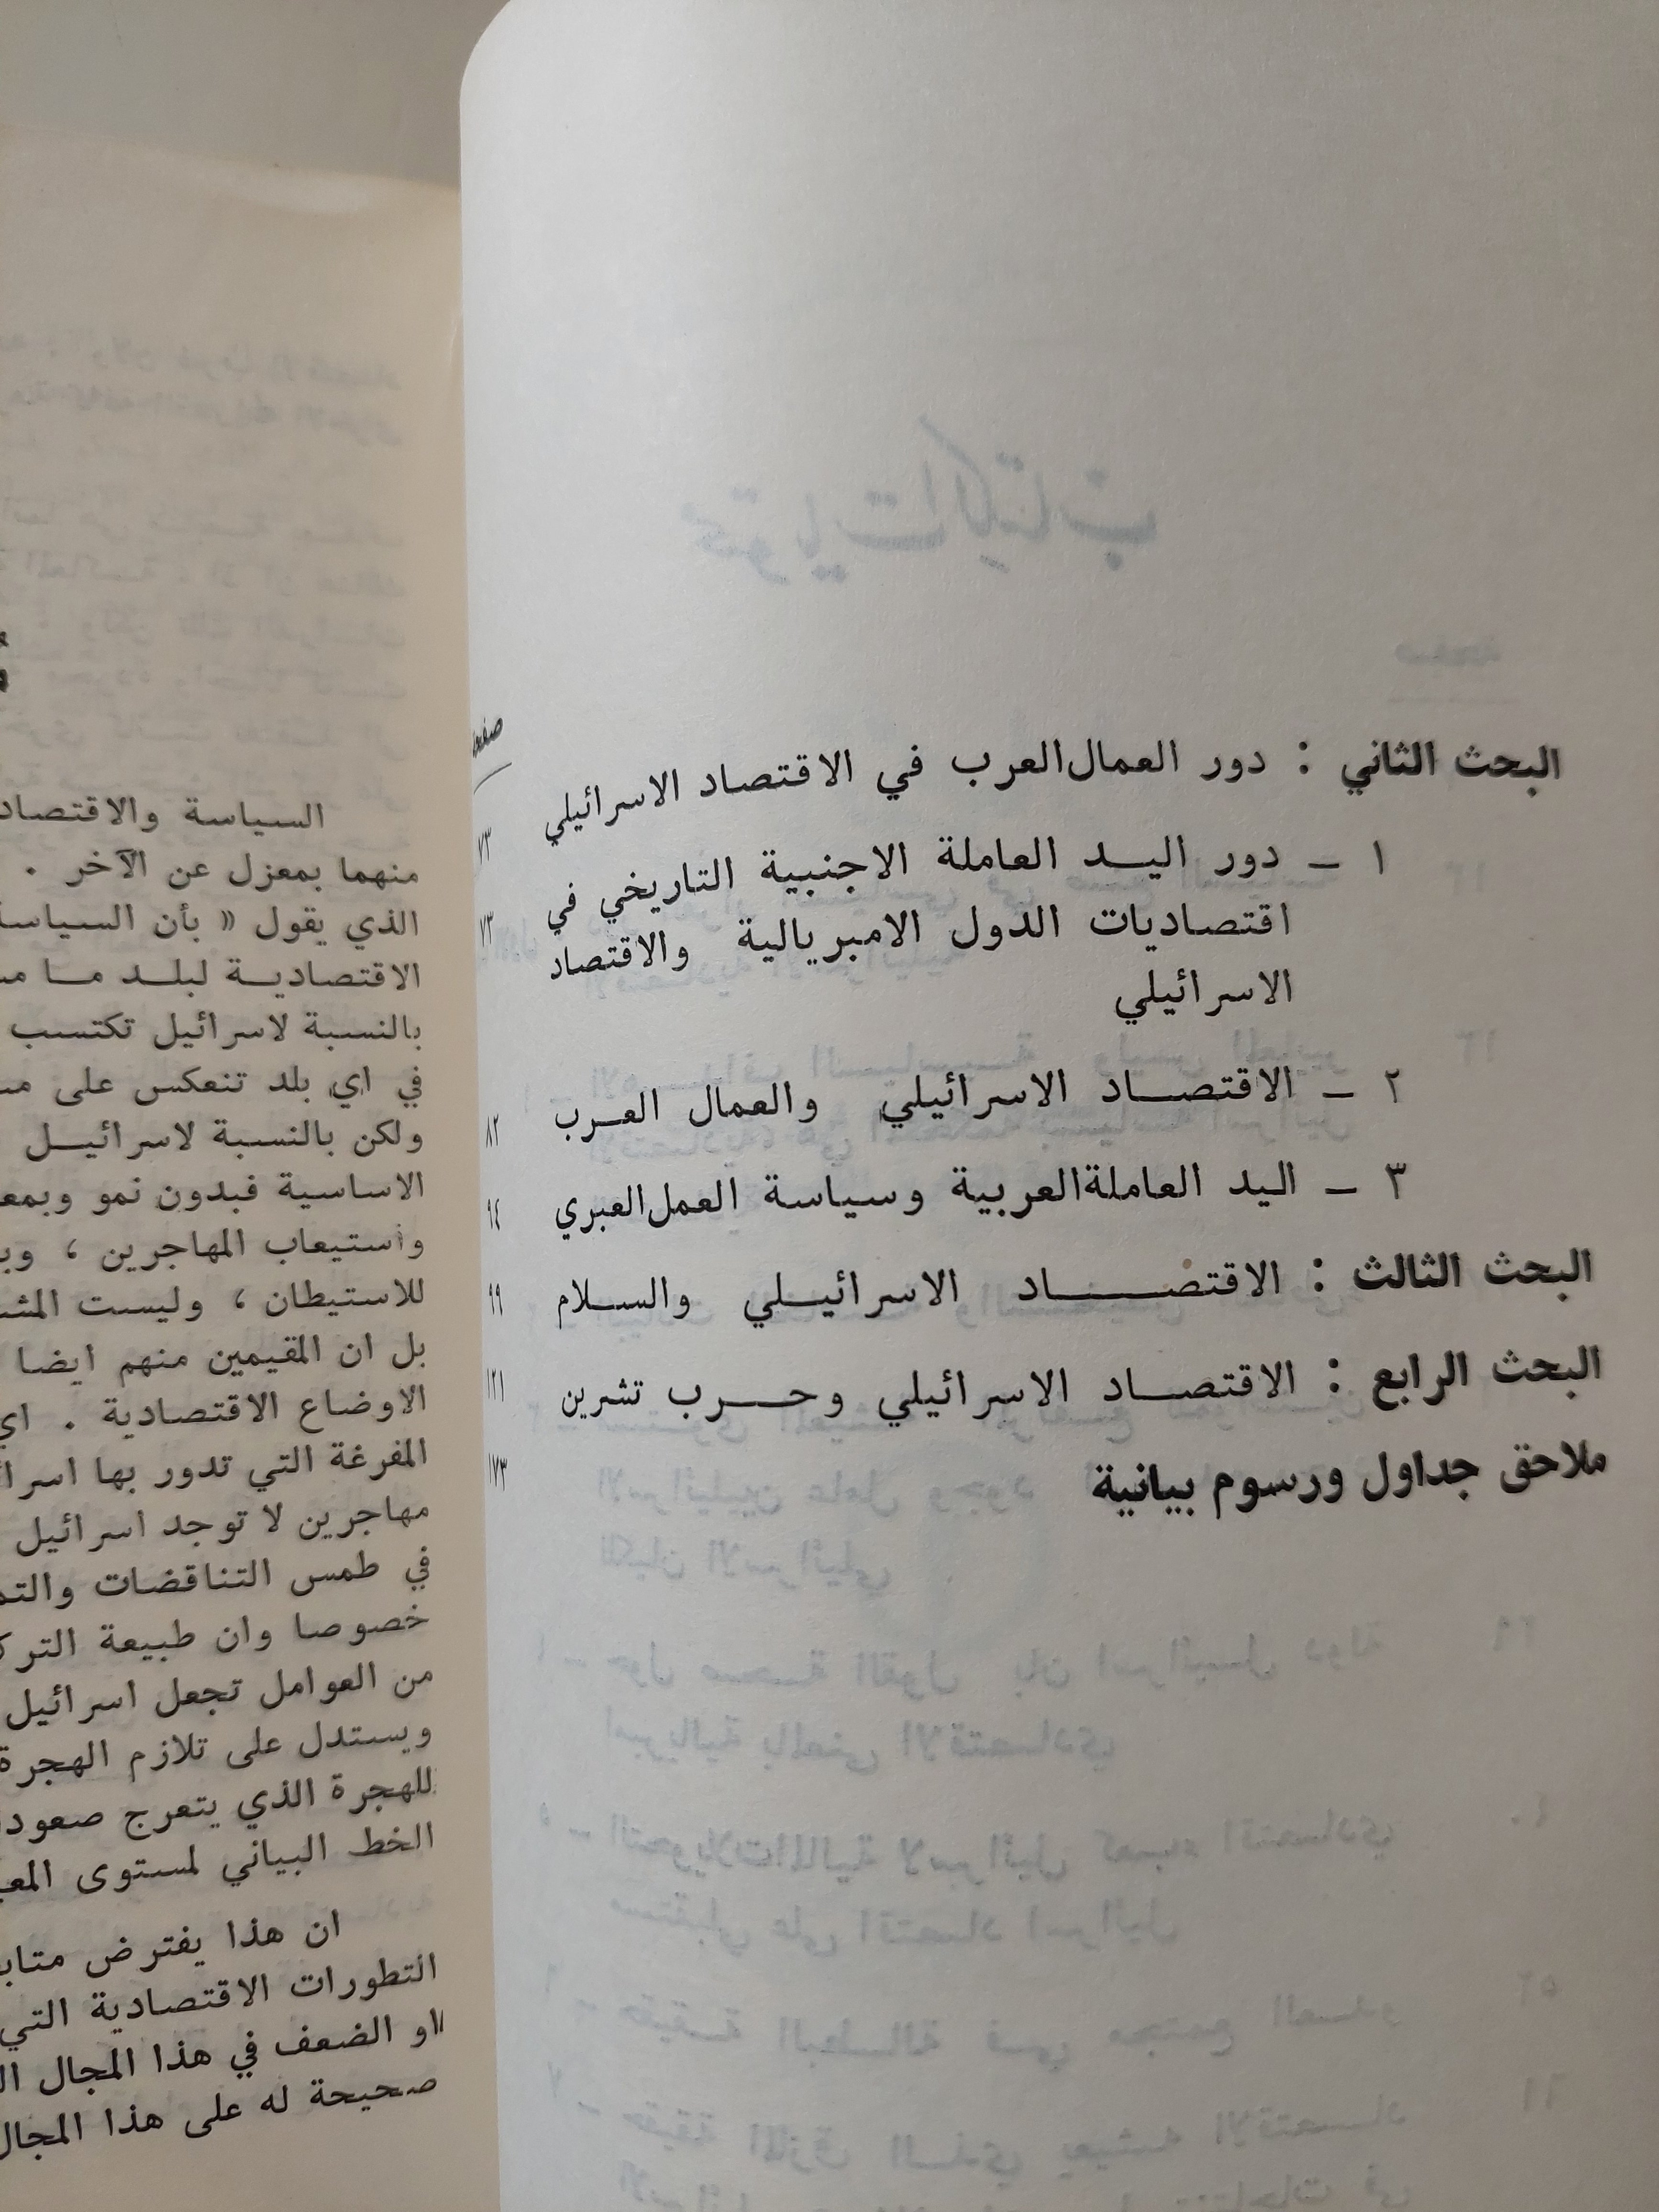 صفحة
البحث الثاني : دور العمال العرب في الاقتصاد الاسرائيلي ٧٣
١ ــ دور اليــد العاملة الاجنبية التاريخي في
اقتصاديات الدول الامبريالية والاقتصاد ٧٣
الاسرائيلي
٢ ــ الاقتصــاد الاسرائيلي والعمال العـرب ٨٢
٣ ــ اليد العاملة العربية وسياسة العمل العبري ٩٤
البحث الثالث : الاقتصــــــاد الاسرائيــلي والســلام ٩٩
البحث الرابع : الاقتصــاد الاسرائيلي وحــــرب تشرين ١٢١
ملاحق جداول ورسوم بيانية ١٧٣
السياسة والاقتصاد
منهما بمعزل عن الآخر .
الذي يقول « بأن
الاقتصاديــة لبلــد مــا
بالنسبة لاسرائيل تكتسب
في اي بلد تنعكس على
ولكن بالنسبة لاسرائيــل
الاساسية فبدون نمو
واستيعاب المهاجرين ،
للاستيطان ، وليست
بل ان المقيمين منهم ايضا
الاوضاع الاقتصادية .
المفرغة التي تدور بها
مهاجرين لا توجد اسرائيل
في طمس التناقضات
خصوصا وان طبيعة
من العوامل تجعل اسرائيل
ويستدل على تلازم الهجرة
للهجرة الذي يتعرج
الخط البياني لمستوى
ان هذا يفترض
التطورات الاقتصادية التي
او الضعف في هذا المجال
صحيحة له على هذا المجال